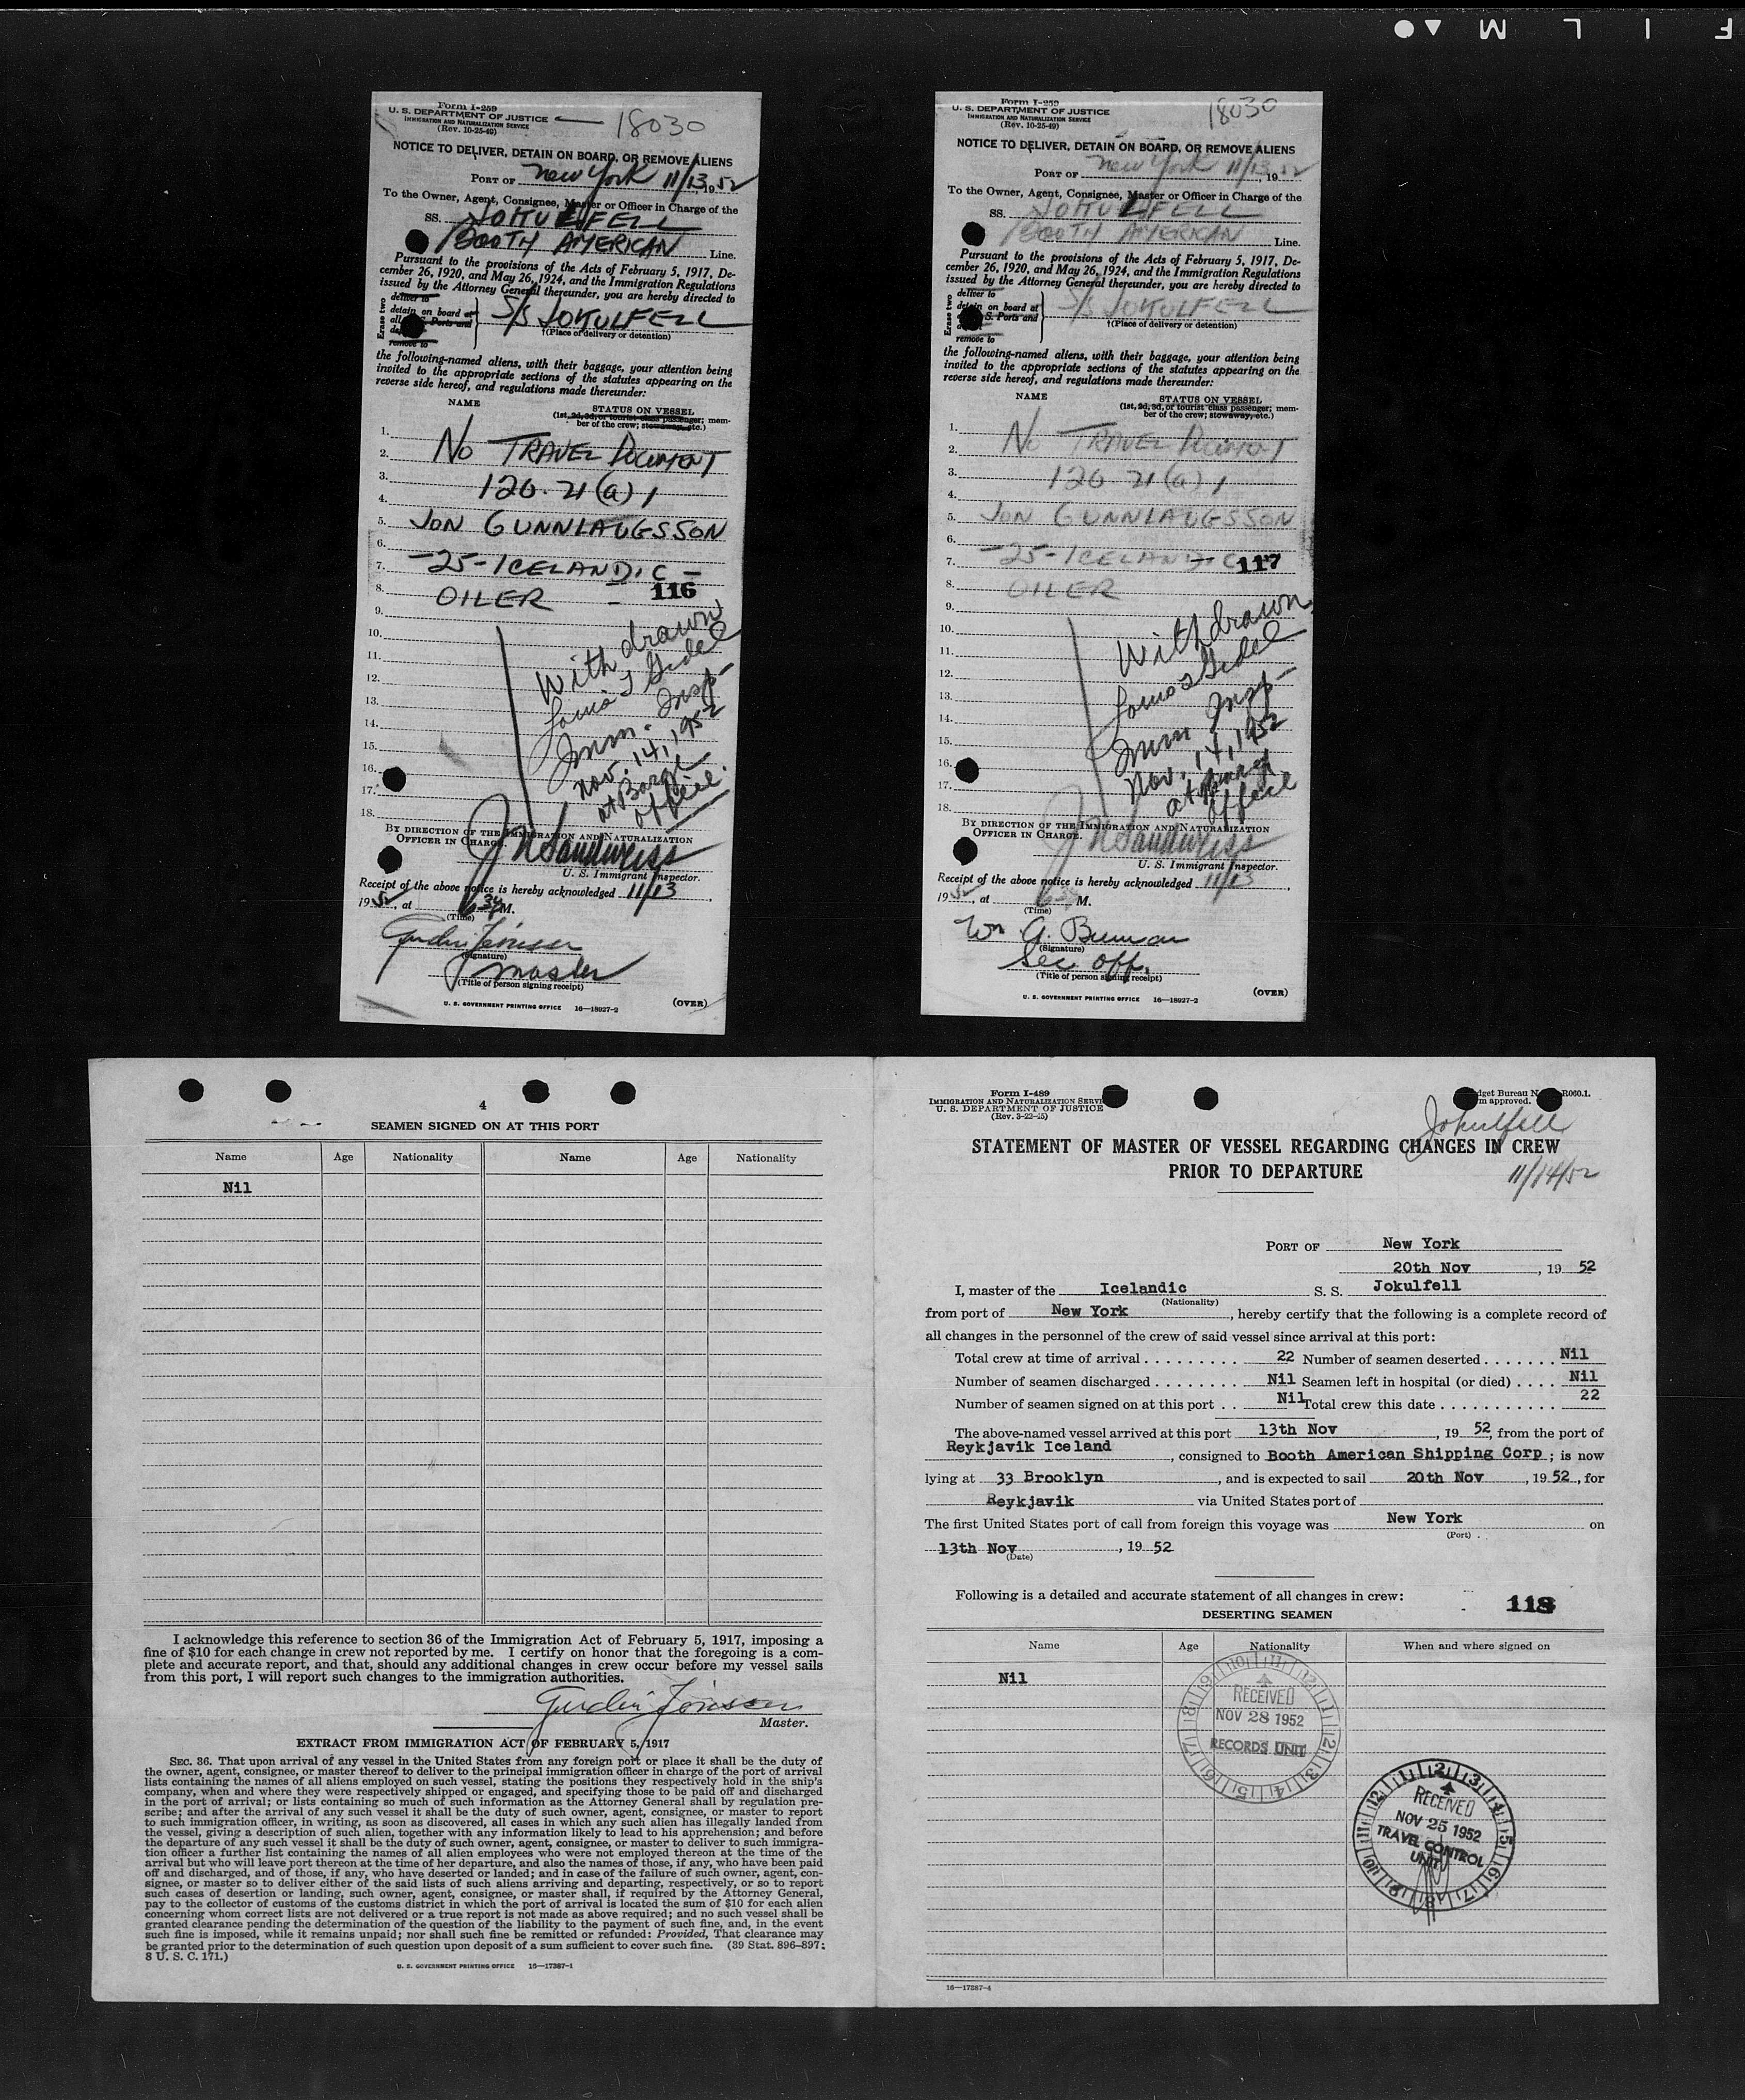 F I L M
Form I-259
U. S. DEPARTMENT OF JUSTICE
IMMIGRATION AND NATURALIZATION SERVICE
(Rev. 10-25-49)
18030
NOTICE TO DELIVER, DETAIN ON BOARD, OR REMOVE ALIENS
PORT OF New York 11/13, 1952
To the Owner, Agent, Consignee, Master or Officer in Charge of the
SS. JOKULFELL
BOOTH AMERICAN Line.
Pursuant to the provisions of the Acts of February 5, 1917, De-
cember 26, 1920, and May 26, 1924, and the Immigration Regulations
issued by the Attorney General thereunder, you are hereby directed to
Erase two
deliver to
detain on board at
all S. Ports and
remove to
S/S JOKULFELL
†(Place of delivery or detention)
the following-named aliens, with their baggage, your attention being
invited to the appropriate sections of the statutes appearing on the
reverse side hereof, and regulations made thereunder:
NAME STATUS ON VESSEL
(1st, 2d, 3d, or tourist class passenger; mem-
ber of the crew; stowaway, etc.)
1.
2. NO TRAVEL DOCUMENT
3. 120.21(a)1
4.
5. JON GUNNLAUGSSON
6.
7. -25-ICELANDIC-
8. OILER - 116
9.
10. Withdrawn
11.
12.
13. Imm. Insp-
14.
15. Nov. 14, 1952
16. at Barge
17. office.
18.
BY DIRECTION OF THE IMMIGRATION AND NATURALIZATION
OFFICER IN CHARGE.
J N Sandweiss
U. S. Immigrant Inspector.
Receipt of the above notice is hereby acknowledged 11/13,
1952, at M.
(Time)
(Signature)
master
(Title of person signing receipt)
U. S. GOVERNMENT PRINTING OFFICE 16—18927-2 (OVER)
Form I-259
U. S. DEPARTMENT OF JUSTICE
IMMIGRATION AND NATURALIZATION SERVICE
(Rev. 10-25-49)
18030
NOTICE TO DELIVER, DETAIN ON BOARD, OR REMOVE ALIENS
PORT OF New York 11/13, 1952
To the Owner, Agent, Consignee, Master or Officer in Charge of the
SS. JOKULFELL
BOOTH AMERICAN Line.
Pursuant to the provisions of the Acts of February 5, 1917, De-
cember 26, 1920, and May 26, 1924, and the Immigration Regulations
issued by the Attorney General thereunder, you are hereby directed to
Erase two
deliver to
detain on board at
S. Ports and
remove to
S/S JOKULFELL
†(Place of delivery or detention)
the following-named aliens, with their baggage, your attention being
invited to the appropriate sections of the statutes appearing on the
reverse side hereof, and regulations made thereunder:
NAME STATUS ON VESSEL
(1st, 2d, 3d, or tourist class passenger; mem-
ber of the crew; stowaway, etc.)
1.
2. NO TRAVEL DOCUMENT
3. 120.21(a)1
4.
5. JON GUNNLAUGSSON
6.
7. -25-ICELANDIC 117
8. OILER
9.
10. Withdrawn
11.
12.
13. Imm Insp-
14.
15. Nov. 14, 1952
16. at Barge
17. office
18.
BY DIRECTION OF THE IMMIGRATION AND NATURALIZATION
OFFICER IN CHARGE.
J N Sandweiss
U. S. Immigrant Inspector.
Receipt of the above notice is hereby acknowledged 11/13,
1952, at M.
(Time)
(Signature)
Sec. Off.
(Title of person signing receipt)
U. S. GOVERNMENT PRINTING OFFICE 16—18927-2 (OVER)
4
SEAMEN SIGNED ON AT THIS PORT
Name Age Nationality Name Age Nationality
Nil
I acknowledge this reference to section 36 of the Immigration Act of February 5, 1917, imposing a
fine of $10 for each change in crew not reported by me. I certify on honor that the foregoing is a com-
plete and accurate report, and that, should any additional changes in crew occur before my vessel sails
from this port, I will report such changes to the immigration authorities.
Master.
EXTRACT FROM IMMIGRATION ACT OF FEBRUARY 5, 1917
SEC. 36. That upon arrival of any vessel in the United States from any foreign port or place it shall be the duty of
the owner, agent, consignee, or master thereof to deliver to the principal immigration officer in charge of the port of arrival
lists containing the names of all aliens employed on such vessel, stating the positions they respectively hold in the ship's
company, when and where they were respectively shipped or engaged, and specifying those to be paid off and discharged
in the port of arrival; or lists containing so much of such information as the Attorney General shall by regulation pre-
scribe; and after the arrival of any such vessel it shall be the duty of such owner, agent, consignee, or master to report
to such immigration officer, in writing, as soon as discovered, all cases in which any such alien has illegally landed from
the vessel, giving a description of such alien, together with any information likely to lead to his apprehension; and before
the departure of any such vessel it shall be the duty of such owner, agent, consignee, or master to deliver to such immigra-
tion officer a further list containing the names of all alien employees who were not employed thereon at the time of the
arrival but who will leave port thereon at the time of her departure, and also the names of those, if any, who have been paid
off and discharged, and of those, if any, who have deserted or landed; and in case of the failure of such owner, agent, con-
signee, or master so to deliver either of the said lists of such aliens arriving and departing, respectively, or so to report
such cases of desertion or landing, such owner, agent, consignee, or master shall, if required by the Attorney General,
pay to the collector of customs of the customs district in which the port of arrival is located the sum of $10 for each alien
concerning whom correct lists are not delivered or a true report is not made as above required; and no such vessel shall be
granted clearance pending the determination of the question of the liability to the payment of such fine, and, in the event
such fine is imposed, while it remains unpaid; nor shall such fine be remitted or refunded: Provided, That clearance may
be granted prior to the determination of such question upon deposit of a sum sufficient to cover such fine. (39 Stat. 896–897;
8 U. S. C. 171.)
U. S. GOVERNMENT PRINTING OFFICE 16—17387-1
Form I-489
IMMIGRATION AND NATURALIZATION SERVI
U. S. DEPARTMENT OF JUSTICE
(Rev. 3-22-45)
dget Bureau N R060.1.
m approved.
Jokulfell
STATEMENT OF MASTER OF VESSEL REGARDING CHANGES IN CREW
PRIOR TO DEPARTURE
11/14/52
PORT OF New York
20th Nov, 19 52
I, master of the Icelandic S. S. Jokulfell
(Nationality)
from port of New York, hereby certify that the following is a complete record of
all changes in the personnel of the crew of said vessel since arrival at this port:
Total crew at time of arrival . . . . . . . . . 22 Number of seamen deserted . . . . . . . Nil
Number of seamen discharged . . . . . . . . Nil Seamen left in hospital (or died) . . . . Nil
Number of seamen signed on at this port . . Nil Total crew this date . . . . . . . . . . . 22
The above-named vessel arrived at this port 13th Nov, 19 52, from the port of
Reykjavik Iceland, consigned to Booth American Shipping Corp; is now
lying at 33 Brooklyn, and is expected to sail 20th Nov, 1952, for
Reykjavik via United States port of
The first United States port of call from foreign this voyage was New York on
(Port)
13th Nov, 19 52
(Date)
Following is a detailed and accurate statement of all changes in crew:
118
DESERTING SEAMEN
Name Age Nationality When and where signed on
Nil
RECEIVED
NOV 28 1952
RECORDS UNIT
RECEIVED
NOV 25 1952
TRAVEL CONTROL
UNIT
16—17387-4